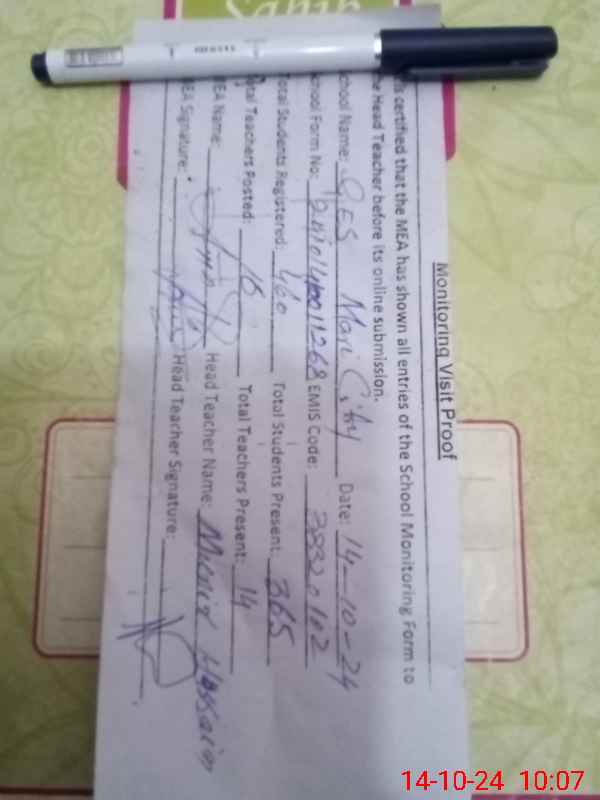 Sahib
Monitoring Visit Proof
is certified that the MEA has shown all entries of the School Monitoring Form to
e Head Teacher before its online submission.
chool Name: GES Mari City Date: 14-10-24
chool Form No: EMIS Code: 38320102
Total Students Registered: 460 Total Students Present: 365
otal Teachers Posted: 16 Total Teachers Present: 14
EA Name: Head Teacher Name: Hussain
EA Signature: Head Teacher Signature:
14-10-24 10:07